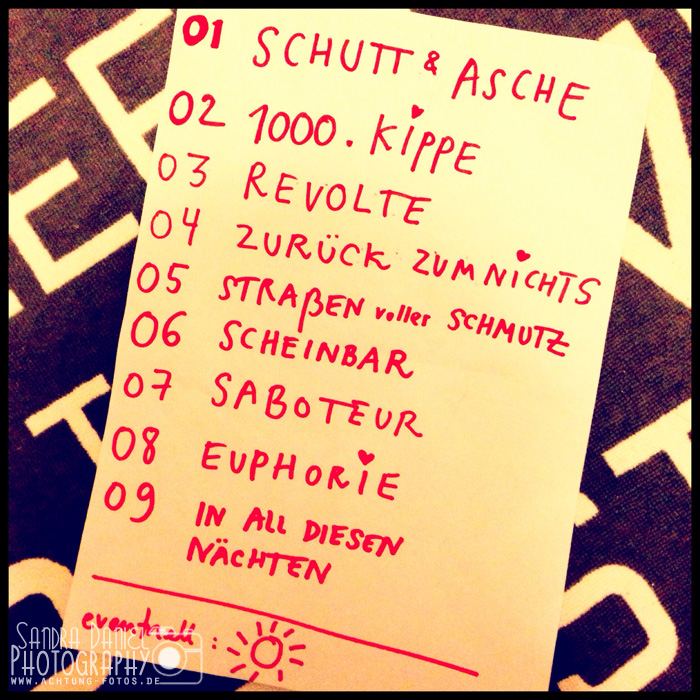 01 SCHUTT & ASCHE
02 1000. KIPPE
03 REVOLTE
04 ZURÜCK ZUM NICHTS
05 STRAßEN voller SCHMUTZ
06 SCHEINBAR
07 SABOTEUR
08 EUPHORIE
09 IN ALL DIESEN
NÄCHTEN
eventuell :
SANDRA DANIEL
PHOTOGRAPHY
WWW.ACHTUNG-FOTOS.DE